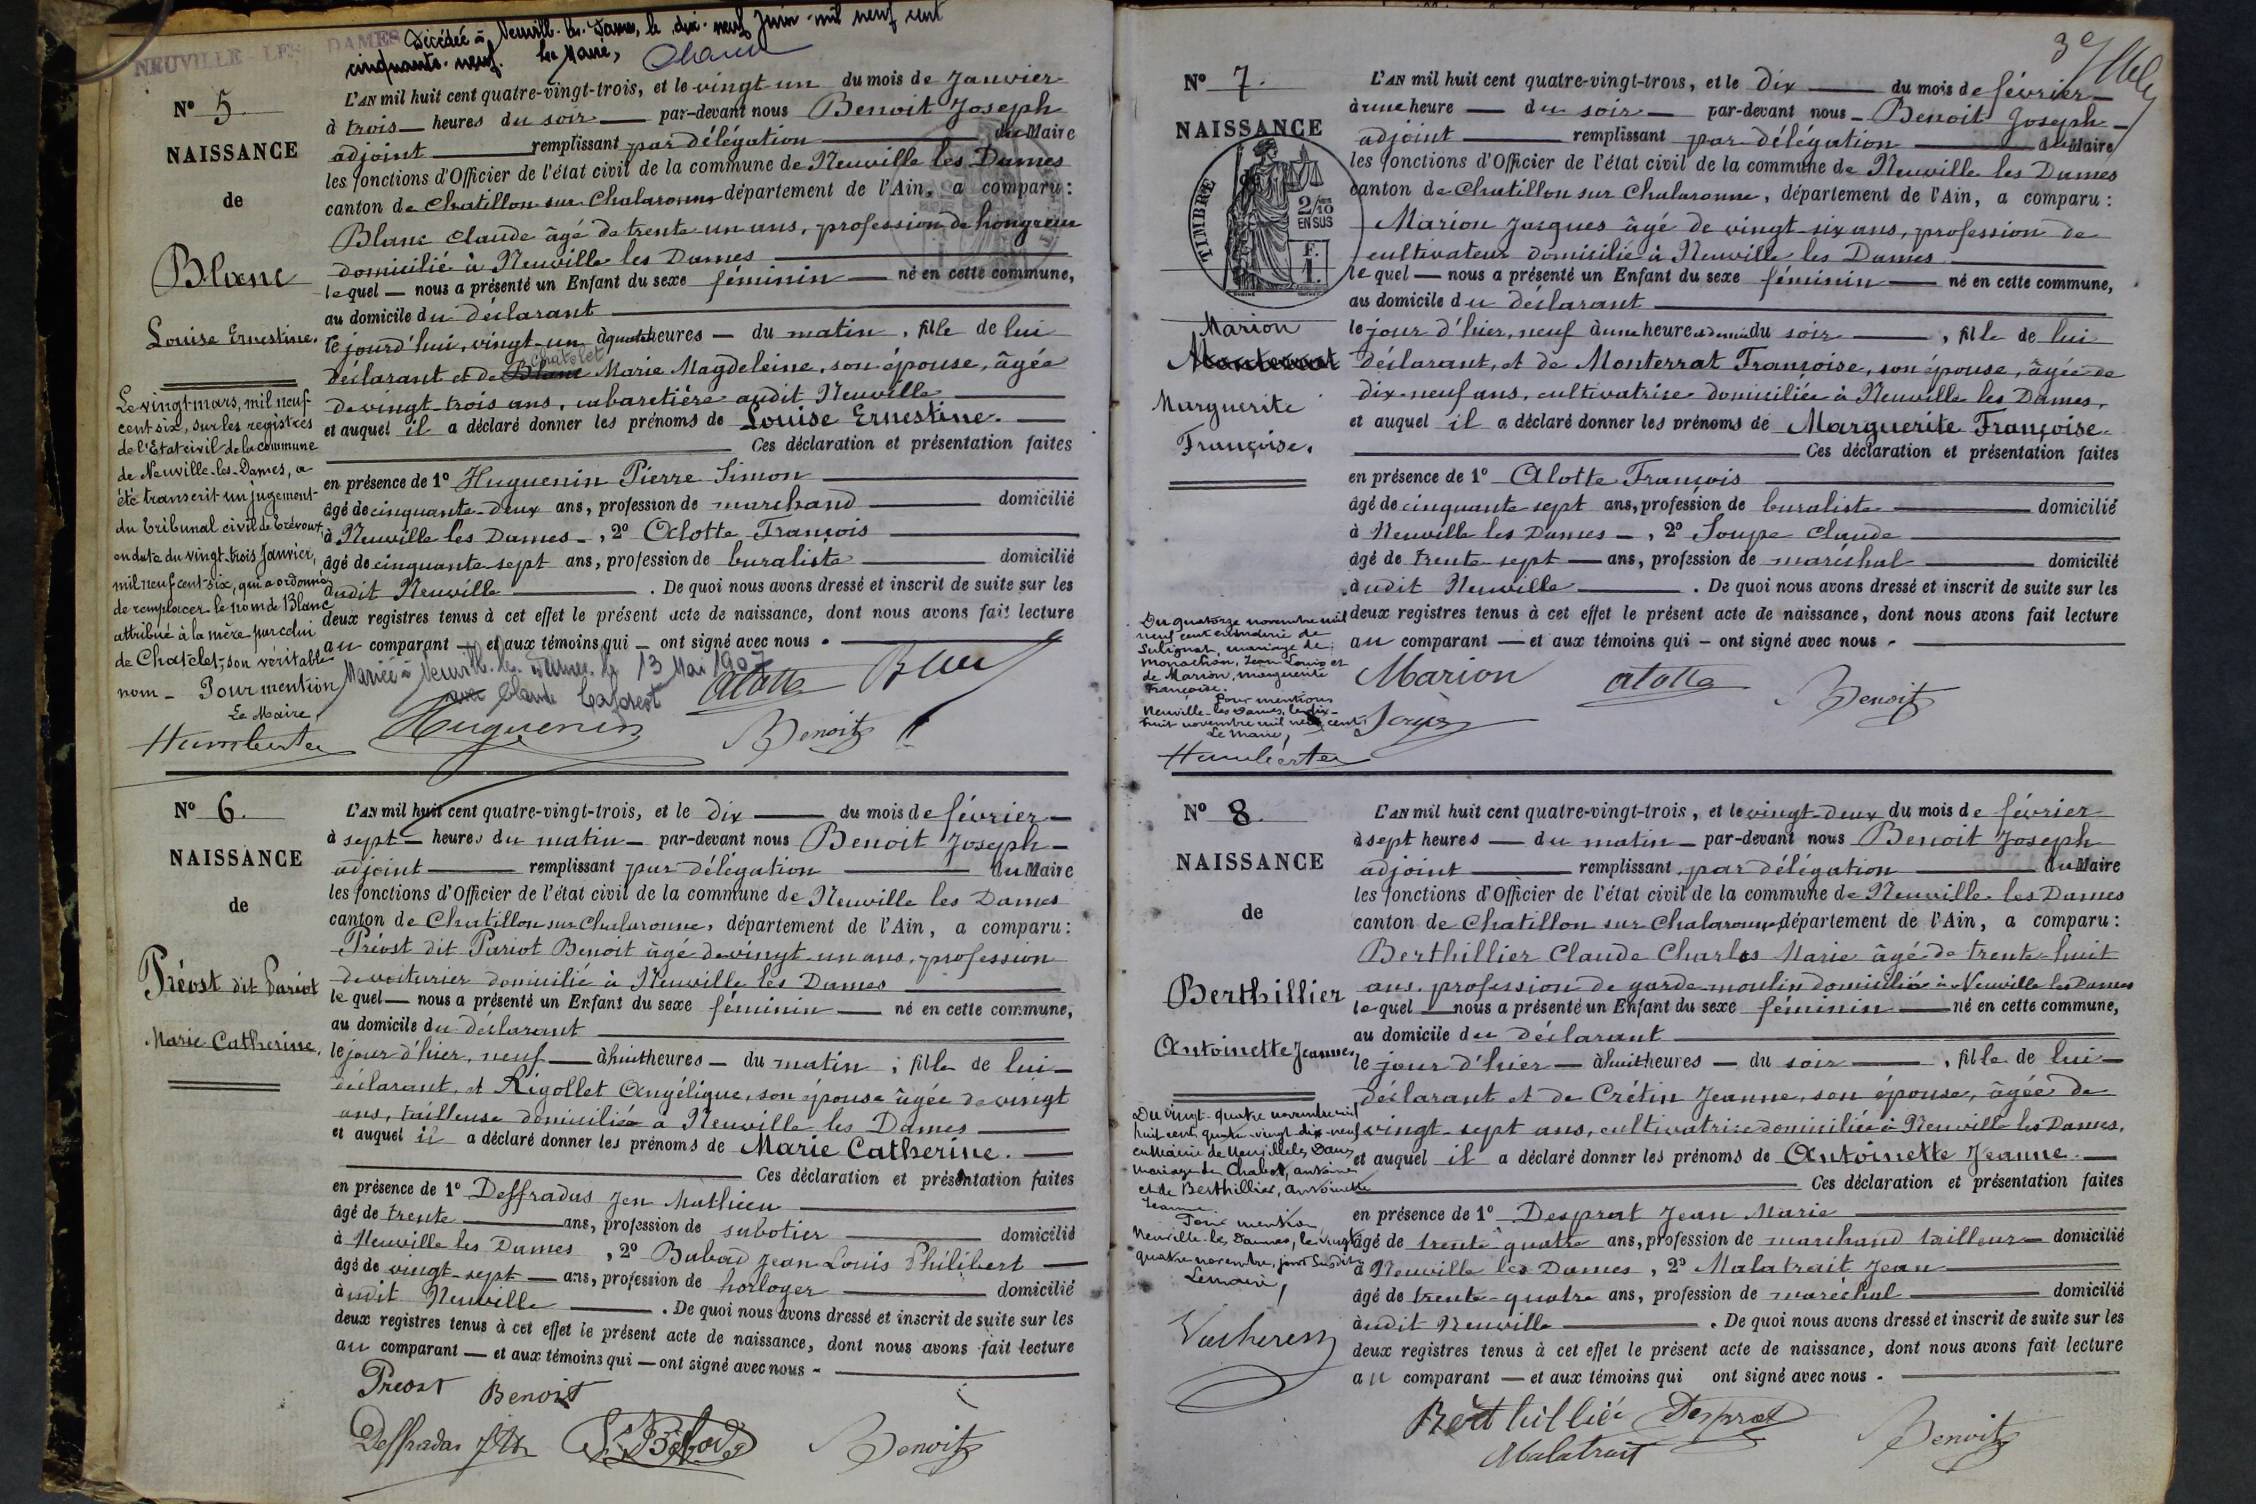 NEUVILLE-LES-DAMES
Décédée à Neuville-les-Dames, le dix-neuf Juin mil neuf cent
cinquante-neuf. Le Maire,
N° 5.
NAISSANCE
de
Blanc
Louise Ernestine.
L'AN mil huit cent quatre-vingt-trois, et le vingt un du mois de Janvier
à trois heures du soir par-devant nous Benoit Joseph
adjoint remplissant par délégation du Maire
les fonctions d'Officier de l'état civil de la commune de Neuville les Dames
canton de Chatillon sur Chalaronne département de l'Ain, a comparu :
Blanc Claude âgé de trente-un ans, profession de hongreur
domicilié à Neuville les Dames
lequel nous a présenté un Enfant du sexe féminin né en cette commune,
au domicile du déclarant
le jourd'hui, vingt-un à quatre heures du matin, fille de lui
chatelet
déclarant et de Blanc Marie Magdeleine, son épouse, âgée
de vingt-trois ans, cabaretière audit Neuville
et auquel il a déclaré donner les prénoms de Louise Ernestine.
Ces déclaration et présentation faites
en présence de 1° Huguenin Pierre Simon
âgé de cinquante-deux ans, profession de marchand domicilié
à Neuville les Dames, 2° Alotte François
âgé de cinquante-sept ans, profession de buraliste domicilié
audit Neuville. De quoi nous avons dressé et inscrit de suite sur les
deux registres tenus à cet effet le présent acte de naissance, dont nous avons fait lecture
au comparant et aux témoins qui ont signé avec nous.
Le vingt mars, mil neuf-
cent six, sur les registres
de l'Etat civil de la commune
de Neuville-les-Dames, a
été transcrit un jugement
du Tribunal civil de Trévoux,
en date du vingt-trois Janvier,
mil neuf cent six, qui a ordonné
de remplacer le nom de Blanc
attribué à la mère par celui
de Chatelet, son véritable
nom - Pour mention
Le Maire,
Humbert
Mariée à Neuville les Dames le 13 Mai 1907
avec Claude Laforest
Alotte Blanc
Huguenin Benoit
N° 6.
NAISSANCE
de
Préost dit Pariot
Marie Catherine.
L'AN mil huit cent quatre-vingt-trois, et le dix du mois de février
à sept heures du matin par-devant nous Benoit Joseph
adjoint remplissant par délégation du Maire
les fonctions d'Officier de l'état civil de la commune de Neuville les Dames
canton de Chatillon sur Chalaronne, département de l'Ain, a comparu :
Préost dit Pariot Benoit âgé de vingt-un ans, profession
de voiturier domicilié à Neuville les Dames
lequel nous a présenté un Enfant du sexe féminin né en cette commune,
au domicile du déclarant
le jour d'hier, neuf à huit heures du matin, fille de lui
déclarant, et Rigollet Angélique, son épouse âgée de vingt
ans, tailleuse domiciliée à Neuville les Dames
et auquel il a déclaré donner les prénoms de Marie Catherine.
Ces déclaration et présentation faites
en présence de 1° Deffradas Jen Mathieu
âgé de trente ans, profession de sabotier domicilié
à Neuville les Dames, 2° Babad Jean Louis Philibert
âgé de vingt-sept ans, profession de horloger domicilié
audit Neuville. De quoi nous avons dressé et inscrit de suite sur les
deux registres tenus à cet effet le présent acte de naissance, dont nous avons fait lecture
au comparant et aux témoins qui ont signé avec nous.
Preost Benoit
Deffradas Babad Benoit
N° 7.
NAISSANCE
de
TIMBRE
2/10
EN SUS
F.
1
Marion
Monterrat
Marguerite
Françoise.
L'AN mil huit cent quatre-vingt-trois, et le dix du mois de février
à une heure du soir par-devant nous Benoit Joseph
adjoint remplissant par délégation du Maire
les fonctions d'Officier de l'état civil de la commune de Neuville les Dames
canton de Chatillon sur Chalaronne, département de l'Ain, a comparu :
Marion Jacques âgé de vingt-six ans, profession de
cultivateur domicilié à Neuville les Dames
lequel nous a présenté un Enfant du sexe féminin né en cette commune,
au domicile du déclarant
le jour d'hier, neuf à une heure et demie du soir, fille de lui
déclarant, et de Monterrat Françoise, son épouse, âgée de
dix-neuf ans, cultivatrice domiciliée à Neuville les Dames,
et auquel il a déclaré donner les prénoms de Marguerite Françoise.
Ces déclaration et présentation faites
en présence de 1° Alotte François
âgé de cinquante sept ans, profession de buraliste domicilié
à Neuville les Dames, 2° Soupe Claude
âgé de trente-sept ans, profession de maréchal domicilié
audit Neuville. De quoi nous avons dressé et inscrit de suite sur les
deux registres tenus à cet effet le présent acte de naissance, dont nous avons fait lecture
au comparant et aux témoins qui ont signé avec nous.
Du quatorze novembre mil
neuf cent en mairie de
Sulignat, mariage de
Monachon, Jean Louis et
de Marion, Marguerite
Françoise.
Pour mention
Neuville-les-Dames, le dix-
huit novembre mil neuf cent.
Le Maire,
Humbert
Marion Alotte Benoit
Soupe
N° 8.
NAISSANCE
de
Berthillier
Antoinette Jeanne
L'AN mil huit cent quatre-vingt-trois, et le vingt-deux du mois de février
à sept heures du matin par-devant nous Benoit Joseph
adjoint remplissant par délégation du Maire
les fonctions d'Officier de l'état civil de la commune de Neuville les Dames
canton de Chatillon sur Chalaronne, département de l'Ain, a comparu :
Berthillier Claude Charles Marie âgé de trente-huit
ans, profession de garde-moulin domicilié à Neuville les Dames
lequel nous a présenté un Enfant du sexe féminin né en cette commune,
au domicile du déclarant
le jour d'hier à huit heures du soir, fille de lui
déclarant et de Crétin Jeanne, son épouse, âgée de
vingt-sept ans, cultivatrice domiciliée à Neuville les Dames,
et auquel il a déclaré donner les prénoms de Antoinette Jeanne.
Ces déclaration et présentation faites
en présence de 1° Desprat Jean Marie
âgé de trente quatre ans, profession de marchand tailleur domicilié
à Neuville les Dames, 2° Malatrait Jean
âgé de trente-quatre ans, profession de maréchal domicilié
audit Neuville. De quoi nous avons dressé et inscrit de suite sur les
deux registres tenus à cet effet le présent acte de naissance, dont nous avons fait lecture
au comparant et aux témoins qui ont signé avec nous.
Du vingt-quatre novembre mil
huit cent quatre-vingt-dix-neuf
en Mairie de Neuville les Dames
mariage de Chabot, antoine
et de Berthillier, antoinette
Jeanne.
Pour mention
Neuville-les-Dames, le vingt
quatre novembre, jour susdit
Le maire,
Vacheresse
Berthillié Desprat
Malatrait Benoit